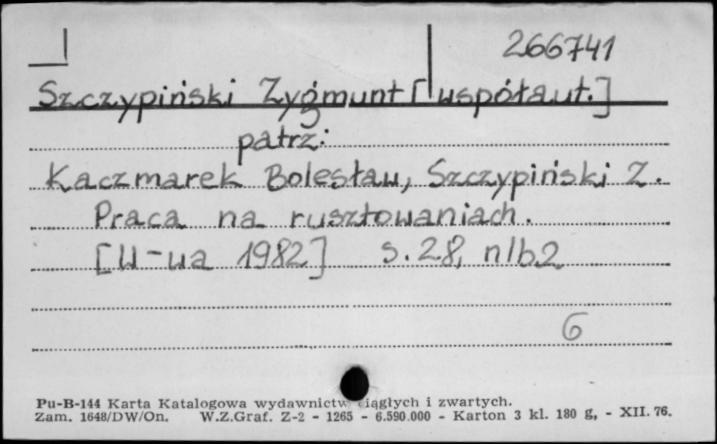 266741
Szczypiński Zygmunt [współaut.]
patrz:
Kaczmarek Bolesław, Szczypiński Z.
Praca na rusztowaniach.
[W-wa 1982] s. 28, nlb 2
6
Pu-B-144 Karta Katalogowa wydawnictw ciągłych i zwartych.
Zam. 1648/DW/On. W.Z.Graf. Z-2 - 1265 - 6.590.000 - Karton 3 kl. 180 g, - XII. 76.